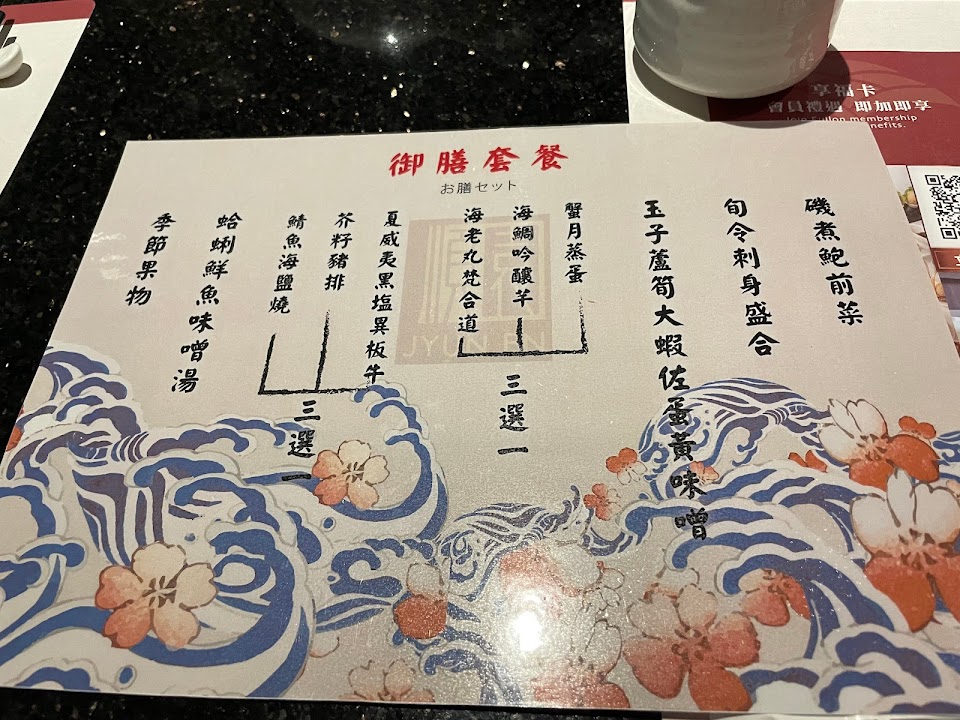 御膳套餐
お膳セット
磯煮鮑前菜
旬令刺身盛合
玉子蘆筍大蝦佐蛋黃味噌
蟹月蒸蛋
海鯛吟釀芊
海老丸梵合道
三選一
夏威夷黑塩異板牛
芥籽豬排
鯖魚海鹽燒
三選一
蛤蜊鮮魚味噌湯
季節果物
JYUN EN
會員禮遇 即加即享
membership